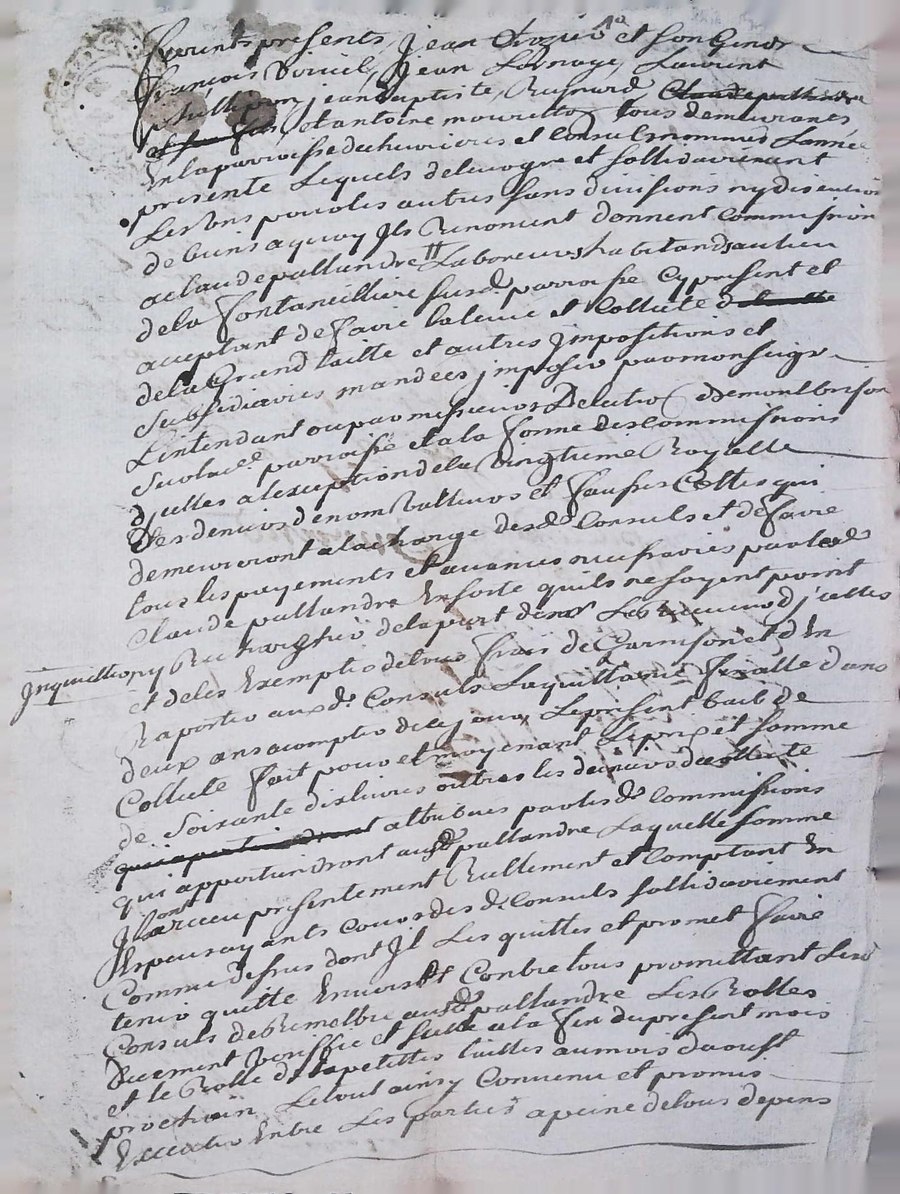 furent presents, Jean et son Gendr
françois Jean Laurent
jean Baptiste,
et antoine tous demeurants
En la parroisse de et Consuls nommés Lannée
presente Lequels de leur gre et sollidairement
Les uns pour les autres sans divisions ny discution
de biens a quoy Jls Renoncent donnent Commission
a claude pallandre Laboureur habitand au lieu
de la susd. parroisse Cy present et
acceptant de faire la levée et Collecte d
de la Grand taille et autres Jmpositions et
Subsidiaires mandées Jmposer par monseigr
Lintendant ou par messieurs De Lection de montbrison
Sur la ce parroisse et a la forme des Commissions
dJcelles a lexception de la Vingtieme Royalle
des deniers de non Valleurs et fausses Cottes qui
demeureront a la charge desd. Consuls et de faire
tous les payements et avances necessaires par led.
Claude pallandre En sorte quils ne soyent point
Jnquiettes ny Recherchés de la part de Les Receveurs dJcelles
et de les Exempter de tous frais de Garnison et d En
Raporter auxd. Consuls La quittance finalle dans
deux ans a compter de ce jour, Le present bail de
Collecte fait pour et moyenant Le prix et somme
de Soixante dix livres outres les deniers de collecte
attribues par lesd. Commissions
qui appartiendront aud. pallandre Laquelle somme
Jl a receu presentement Reellement et Comptant En
Especes ayants Cours desd. Consuls sollidairement
Comme dessus dont Jl Les quitte et promet faire
tenir quitte Envers et Contre tous promettant Lesd.
Consuls de Remettre aud. pallandre Les Rolles
duement Veriffié et a la fin du present mois
et le Rolle de la petittes tailles au mois daoust
prochain Le tout ainsy Convenu et promis
Executer Entre Les parties a peine de tous depens